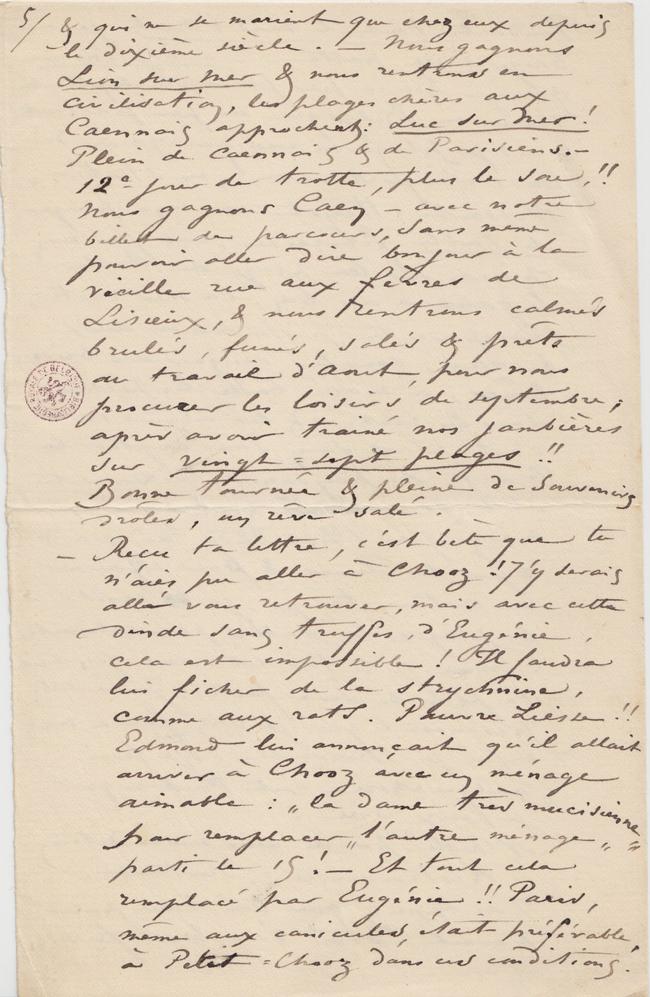 5/
& qui ne se marient que chez eux depuis
le dixième siècle. — Nous gagnons
Lion sur mer & nous rentrons en
civilisation, les plages chères aux
Caennais approchent: Luc sur Mer!
Plein de Caennais & de Parisiens. —
12e jour de trotte, plus le soir,!!
Nous gagnons Caen — avec notre
billet de parcours, sans même
pouvoir aller dire bonjour à la
vieille rue aux fèvres de
Lisieux, & nous rentrons calmés
brulés, fumés, salés & prêts
au travail d'Aout, pour nous
procurer les loisirs de septembre;
après avoir trainé nos jambières
sur vingt=sept plages !!
Bonne tournée & pleine de Souvenirs
drôles, un rêve salé.
— Reçu ta lettre, c'est bête que tu
n'aies pu aller à Chooz! J'y serais
allé vous retrouver, mais avec cette
dinde sans truffes, d'Eugénie,
cela est impossible! Il faudra
lui ficher de la strychnine,
comme aux rats. Pauvre Liesse!!
Edmond lui annonçait qu'il allait
arriver à Chooz avec un ménage
aimable: „la dame très mucisienne"
pour remplacer „l'autre ménage „ „
parti le 15! — Et tout cela
remplacé par Eugénie!! Paris,
même aux canicules, était préférable
à Petit=Chooz dans ces conditions!
BIBLIOTHEQUE ROYALE DE BELGIQUE